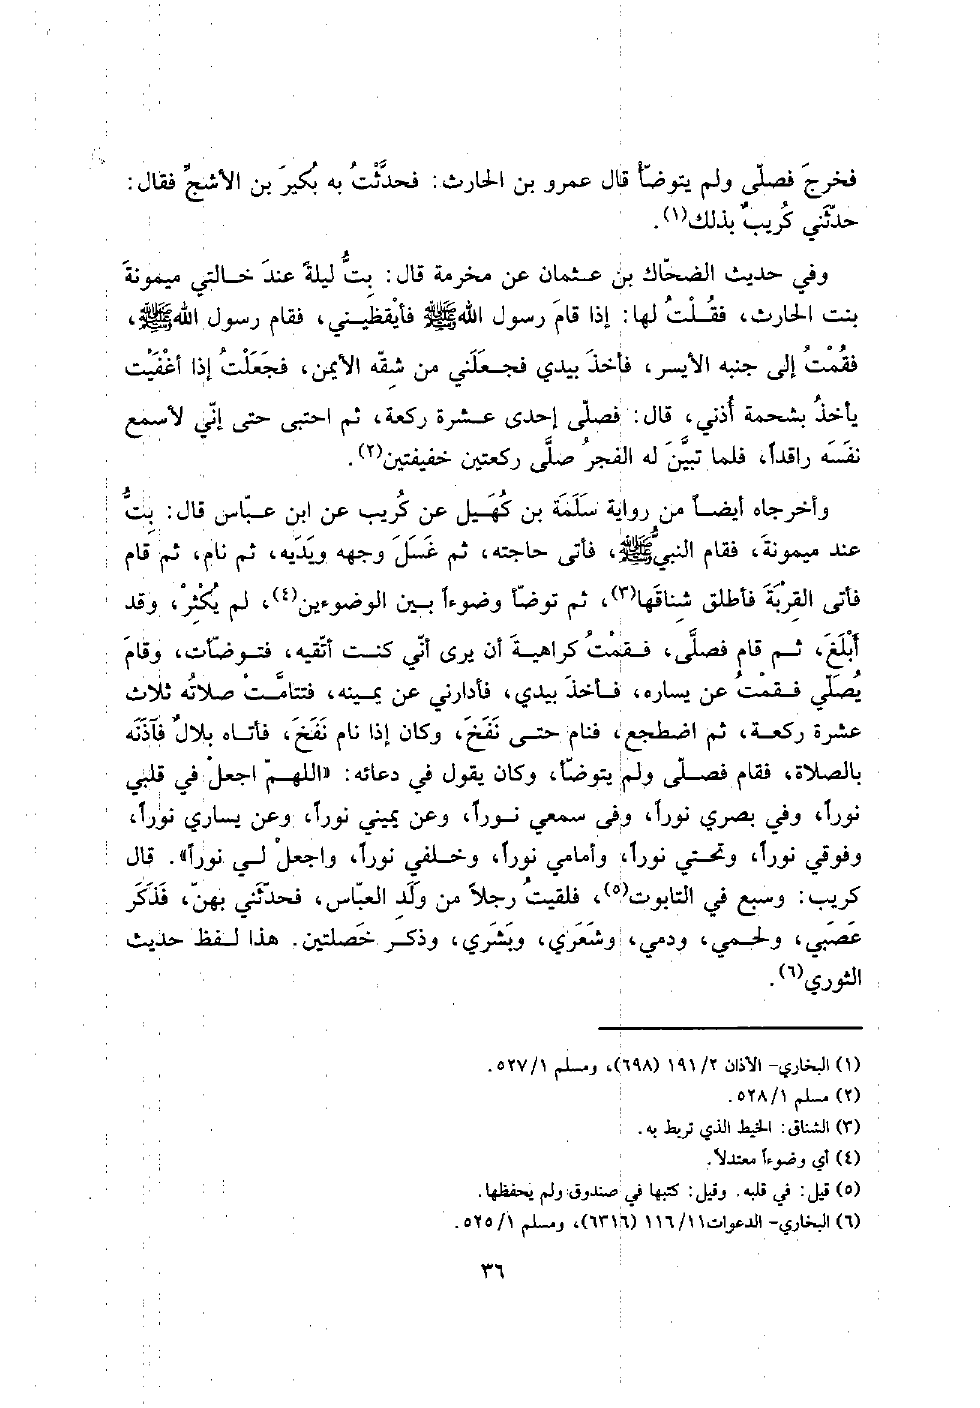 فخرجَ فصلّى ولم يتوضأ قال عمرو بن الحارث: فحدَّثْتُ به بُكيرَ بن الأشجِّ فقال:
حدّثني كُريبٌ بذلك(١).
وفي حديث الضحّاك بن عثمان عن مخرمة قال: بِتُّ ليلةً عندَ خالتي ميمونةَ
بنت الحارث، فقُلْتُ لها: إذا قامَ رسول اللهﷺ فأيْقظيني، فقام رسول اللهﷺ،
فقُمْتُ إلى جنبه الأيسر، فأخذَ بيدي فجعَلَني من شقِّه الأيمن، فجَعَلْتُ إذا أغْفَيْت
يأخذُ بشحمة أُذني، قال: فصلّى إحدى عشرة ركعة، ثم احتبى حتى إنّي لأسمع
نفَسَه راقداً، فلما تبيَّنَ له الفجرُ صلَّى ركعتين خفيفتين(٢).
وأخرجاه أيضاً من رواية سَلَمَة بن كُهَيل عن كُريب عن ابن عبّاس قال: بِتُّ
عند ميمونةَ، فقام النبيُّﷺ، فأتى حاجته، ثم غَسَلَ وجهه ويَدَيه، ثم نام، ثم قام
فأتى القِرْبَةَ فأطلق شِناقَها(٣)، ثم توضّأ وضوءاً بين الوضوءين(٤)، لم يُكْثِرْ، وقد
أَبْلَغَ، ثم قام فصلَّى، فقمْتُ كراهيةَ أن يرى أنّي كنت أتّقيه، فتوضّأت، وقامَ
يُصَلّي فقمْتُ عن يساره، فأخذَ بيدي، فأدارني عن يمينه، فتتامَّتْ صلاتُه ثلاث
عشرة ركعة، ثم اضطجع، فنام حتى نَفَخَ، وكان إذا نام نَفَخَ، فأتاه بلالٌ فآذَنَه
بالصلاة، فقام فصلّى ولم يتوضّأ، وكان يقول في دعائه: «اللهمّ اجعلْ في قلبي
نوراً، وفي بصري نوراً، وفي سمعي نوراً، وعن يميني نوراً، وعن يساري نوراً،
وفوقي نوراً، وتحتي نوراً، وأمامي نوراً، وخلفي نوراً، واجعلْ لي نوراً». قال
كريب: وسبع في التابوت(٥)، فلقيتُ رجلاً من ولَدِ العبّاس، فحدّثني بهنّ، فَذَكَرَ
عَصَبي، ولحمي، ودمي، وشَعَري، وبَشَري، وذكر خَصلتين. هذا لفظ حديث
الثوري(٦).
(١) البخاري- الأذان ٢/ ١٩١ (٦٩٨)، ومسلم ١/ ٥٢٧.
(٢) مسلم ١/ ٥٢٨.
(٣) الشناق: الخيط الذي تربط به.
(٤) أي وضوءاً معتدلاً.
(٥) قيل: في قلبه. وقيل: كتبها في صندوق ولم يحفظها.
(٦) البخاري- الدعوات ١١/ ١١٦ (٦٣١٦)، ومسلم ١/ ٥٢٥.
٣٦